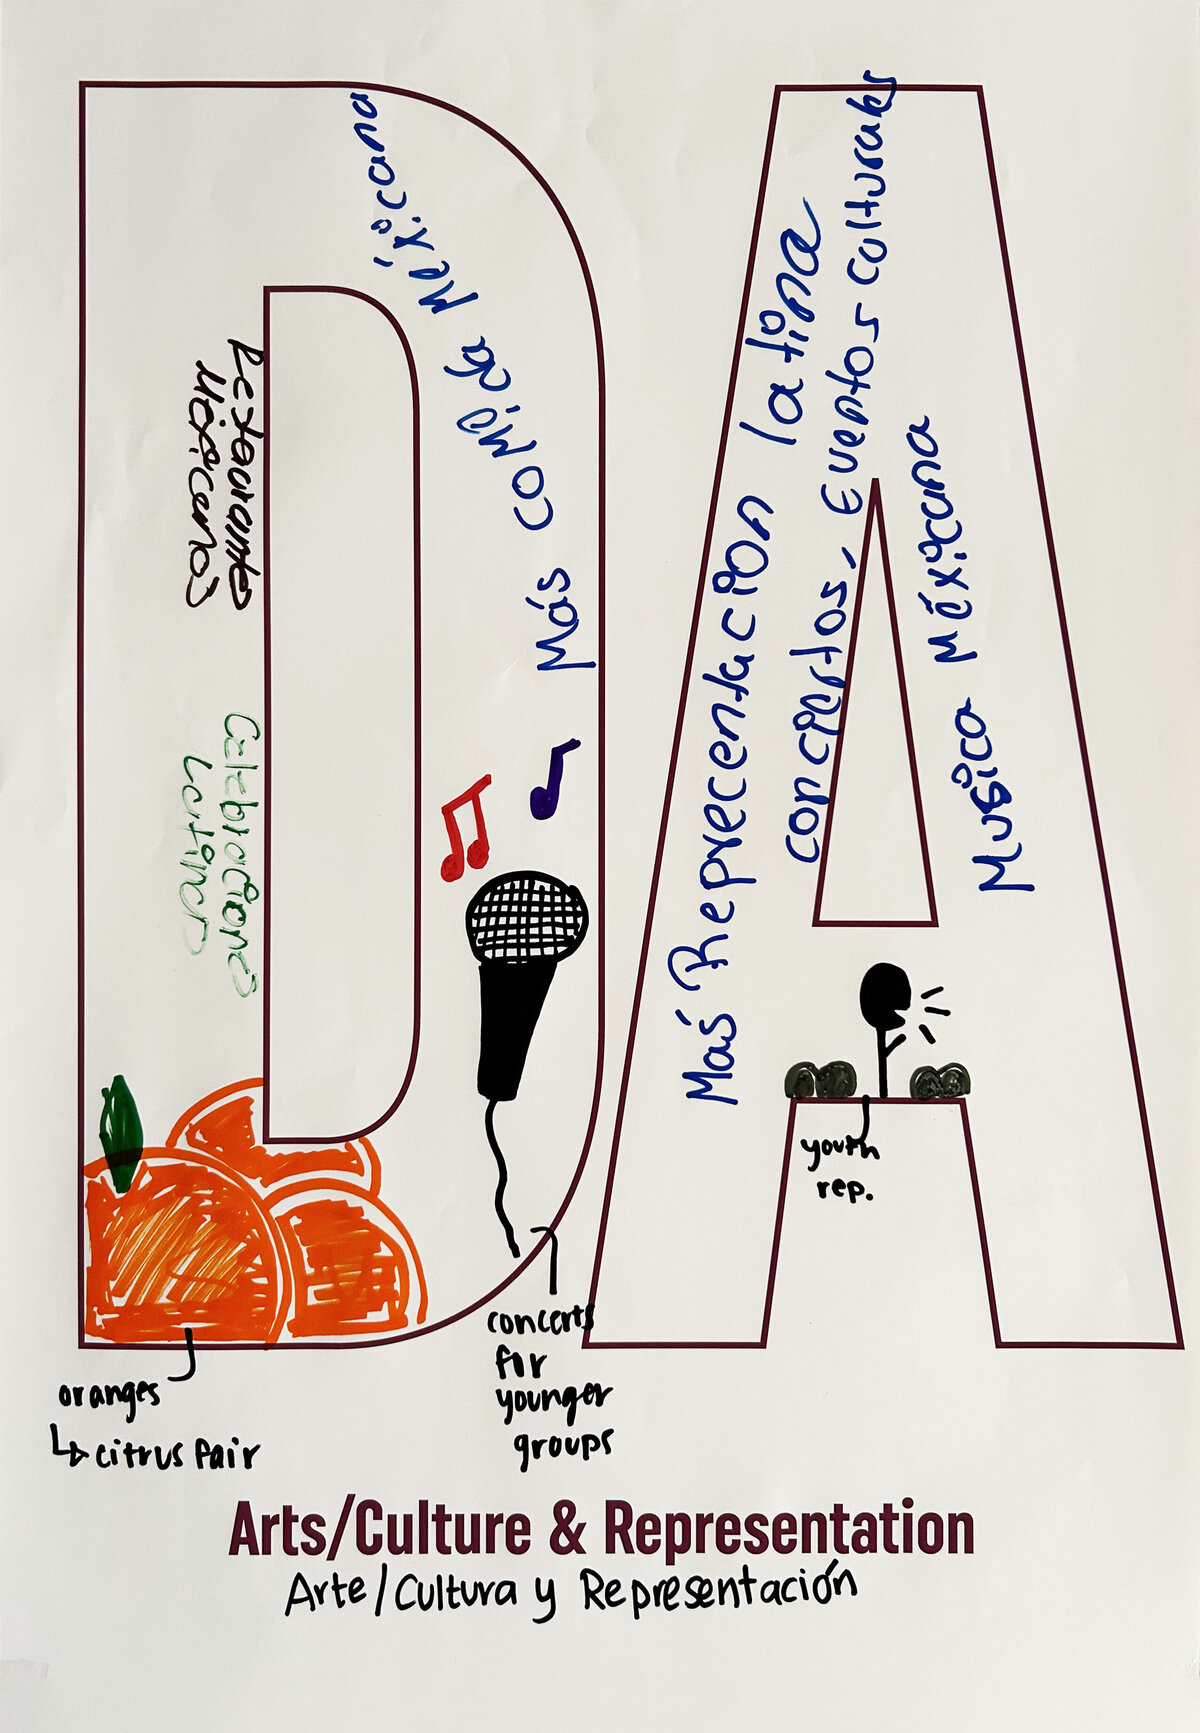 DA
Restaurantes
Mexicanos
Celebraciones
Latinos
Más comida Méxicana
Más Reprecentacion latina
conciertos, Eventos culturales
Musica Méxicana
youth
rep.
oranges
↳ citrus fair
concerts
for
younger
groups
Arts/Culture & Representation
Arte/Cultura y Representación